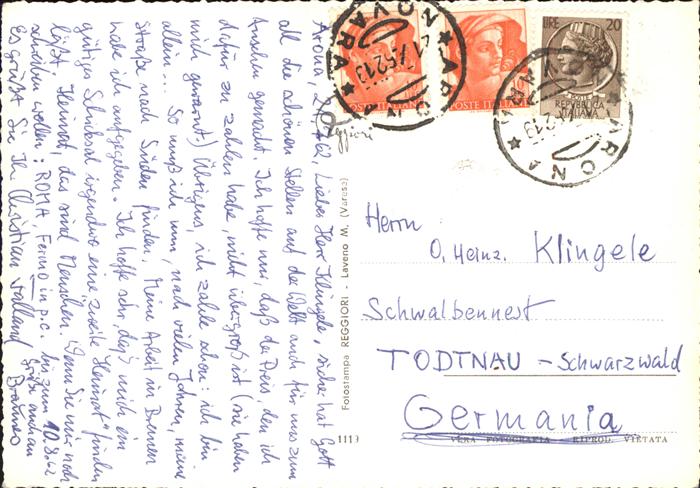 Arona, 62, Lieber Herr Klingele, sicher hat Gott
all die schönen Stellen auf der Welt auch für uns zum
Ansehen gemacht. Ich hoffe nur, daß der Preis, den ich
dafür zu zahlen habe, nicht übergroß ist (Sie haben
mich gewarnt) Übrigens, ich zahle schon: ich bin
allein... So muß ich nun, nach vielen Jahren, meine
Straße nach Süden finden. Meine Arbeit in Bremen
habe ich aufgegeben. Ich hoffe sehr, daß mich ein
gütiges Schicksal irgendwo eine zweite "Heimat" finden
läßt. Heimat, das sind Menschen. Wenn Sie mir noch
schreiben wollen: ROMA, Fermo in p.c. bis zum 10.8.62
Es grüßt Sie Ihr Christian
Grüße auch an
Reggiori
Fotostampa REGGIORI - Laveno M. (Varese)
1113
POSTE ITALIANE
POSTE ITALIANE
LIRE 20
POSTE
REPUBBLICA
ITALIANA
ARONA
NOVARA
ARONA
NOVARA
Herrn
O. Heinz. Klingele
Schwalbennest
TODTNAU - Schwarzwald
Germania
VERA FOTOGRAFIA - RIPROD. VIETATA